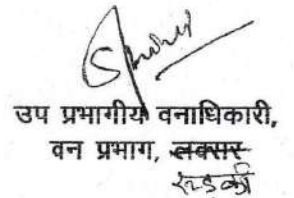 उप प्रभागीय वनाधिकारी,
वन प्रभाग, लक्सर
रूड़की